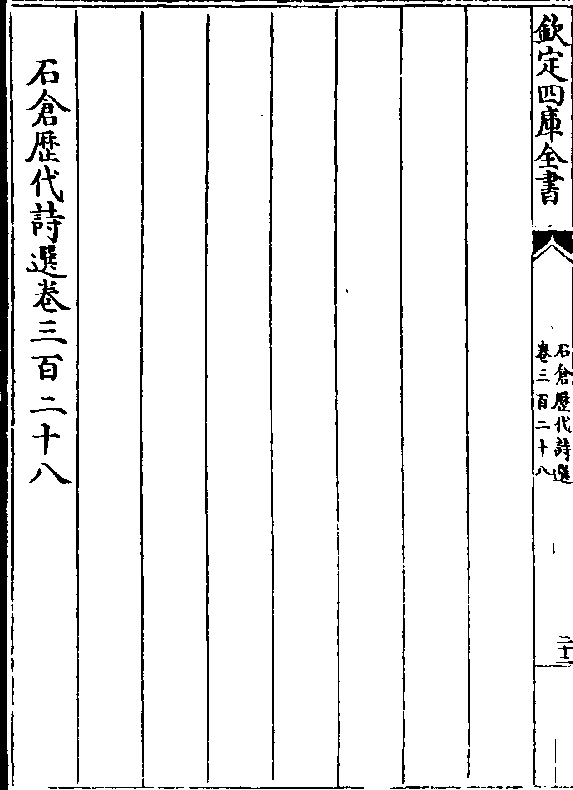 欽定四庫全書
石倉歷代詩選
卷三百二十八
石倉歷代詩選卷三百二十八